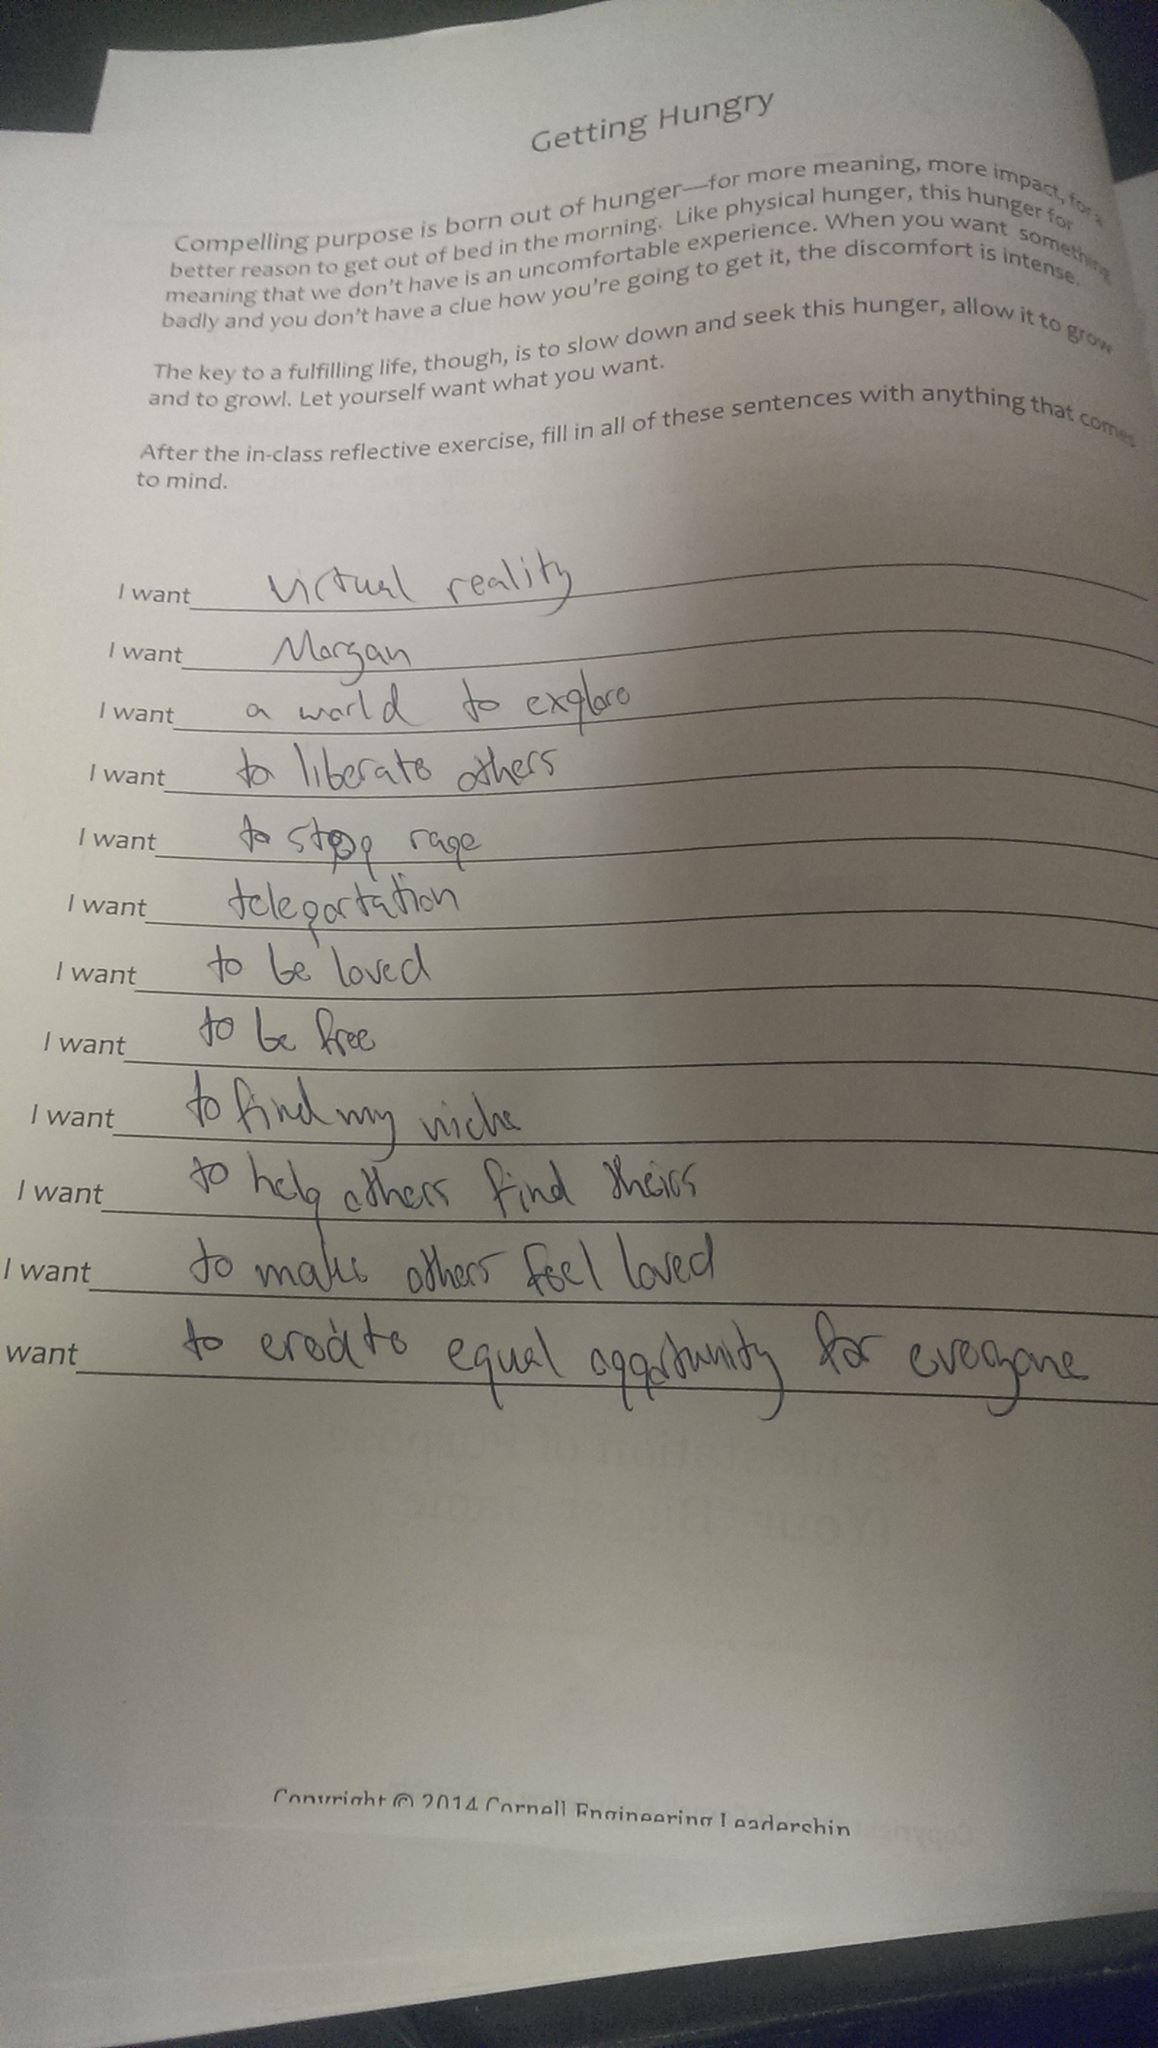 Getting Hungry
Compelling purpose is born out of hunger—for more meaning, more impact, for a
better reason to get out of bed in the morning. Like physical hunger, this hunger for
meaning that we don't have is an uncomfortable experience. When you want something
badly and you don't have a clue how you're going to get it, the discomfort is intense.
The key to a fulfilling life, though, is to slow down and seek this hunger, allow it to grow
and to growl. Let yourself want what you want.
After the in-class reflective exercise, fill in all of these sentences with anything that comes
to mind.
I want virtual reality
I want Morgan
I want a world to explore
I want to liberate others
I want to stop rage
I want teleportation
I want to be loved
I want to be free
I want to find my niche
I want to help others find theirs
I want to make others feel loved
want to create equal opportunity for everyone
Copyright © 2014 Cornell Engineering Leadership